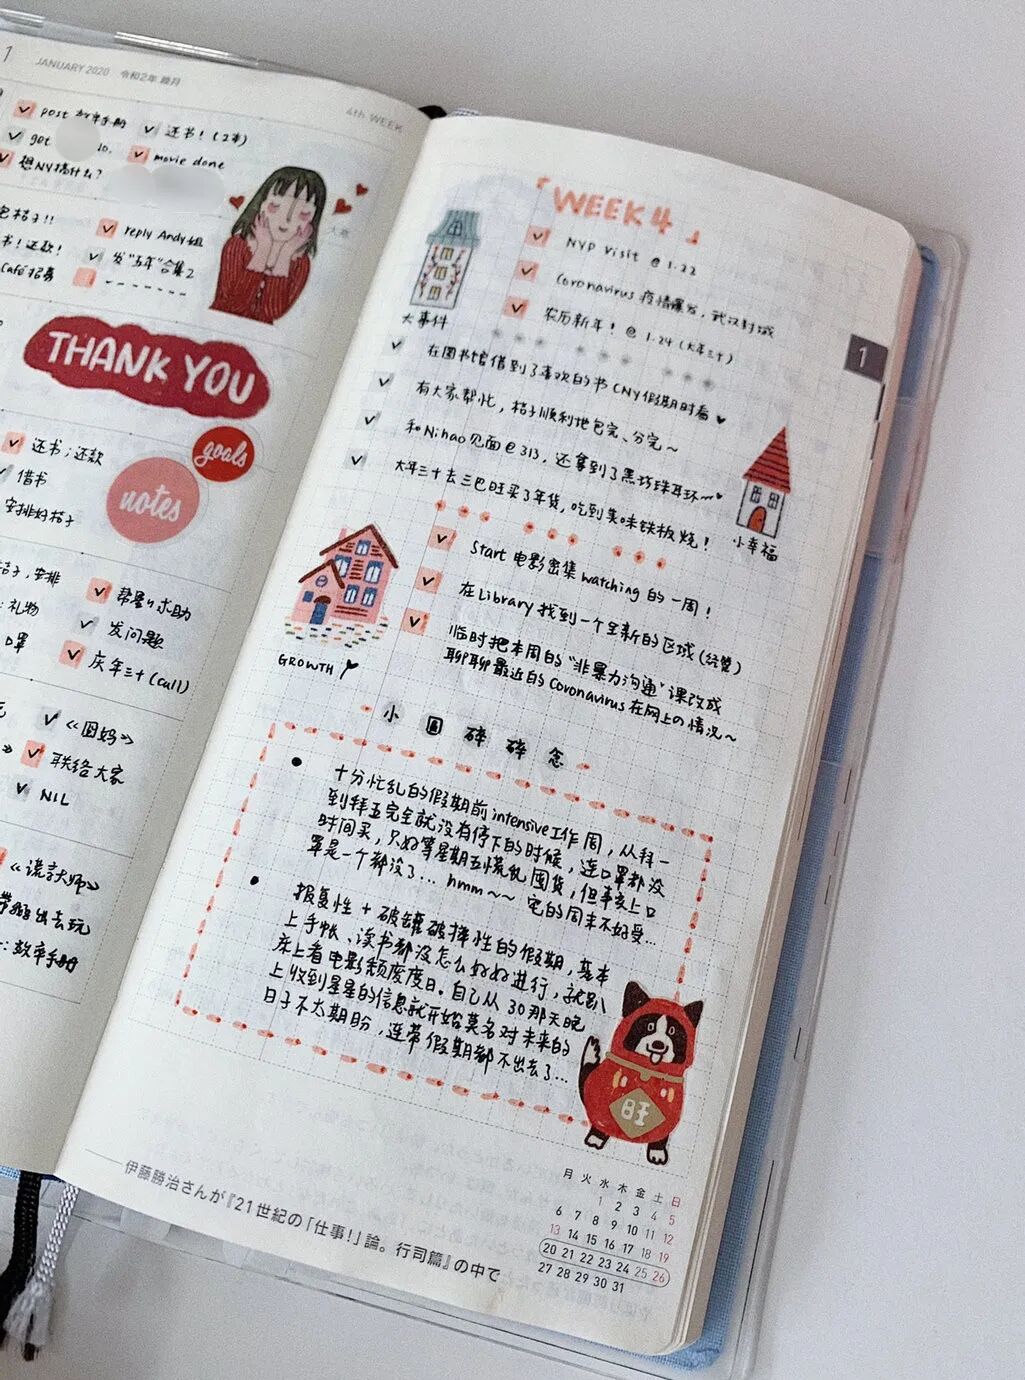 1 JANUARY 2020 令和2年 睦月
4th WEEK
post 效率手册
还书！(2本)
get
movie done
想NY搞什么？
桔子!!
reply Andy姐
书！还款！
发"五年"合集2
Café招募
THANK YOU
goals
notes
还书；还款
借书
安排好桔子
桔子，安排
求助
礼物
发问题
口罩
庆年三十(call)
《囧妈》
联络大家
NIL
《谎言大师》
出去玩
：效率手册
WEEK 4
NYP visit @ 1.22
Coronavirus 疫情爆发，武汉封城
农历新年！@ 1.24 (大年三十)
大事件
在图书馆借到了喜欢的书 CNY假期时看
有大家帮忙，桔子顺利地包完、分完~
和Nihao见面@313，还拿到了黑珍珠耳环~
大年三十去三巴旺买了年货，吃到美味铁板烧！
小幸福
Start 电影密集 watching 的一周！
在Library 找到一个全新的区域(经管)
临时把本周的"非暴力沟通"课改成
聊聊最近的Coronavirus在网上の情况~
GROWTH
小圆碎碎念
十分忙乱的假期前intensive工作周，从拜一
到拜五完全就没有停下的时候，连口罩都没
时间买，只好等星期五慌乱囤货，但事实上口
罩是一个都没了... hmm~~ 宅的周末不好受...
报复性+破罐破摔性的假期，基本
上手帐、读书都没怎么好好进行，就趴
床上看电影颓废度日。自己从30那天晚
上收到星星的信息就开始莫名对未来的
日子不太期盼，连带假期都不出去了...
旺
月 火 水 木 金 土 日
1 2 3 4 5
6 7 8 9 10 11 12
13 14 15 16 17 18 19
20 21 22 23 24 25 26
27 28 29 30 31
伊藤勝治さんが『21世紀の「仕事!」論。行司篇』の中で
1